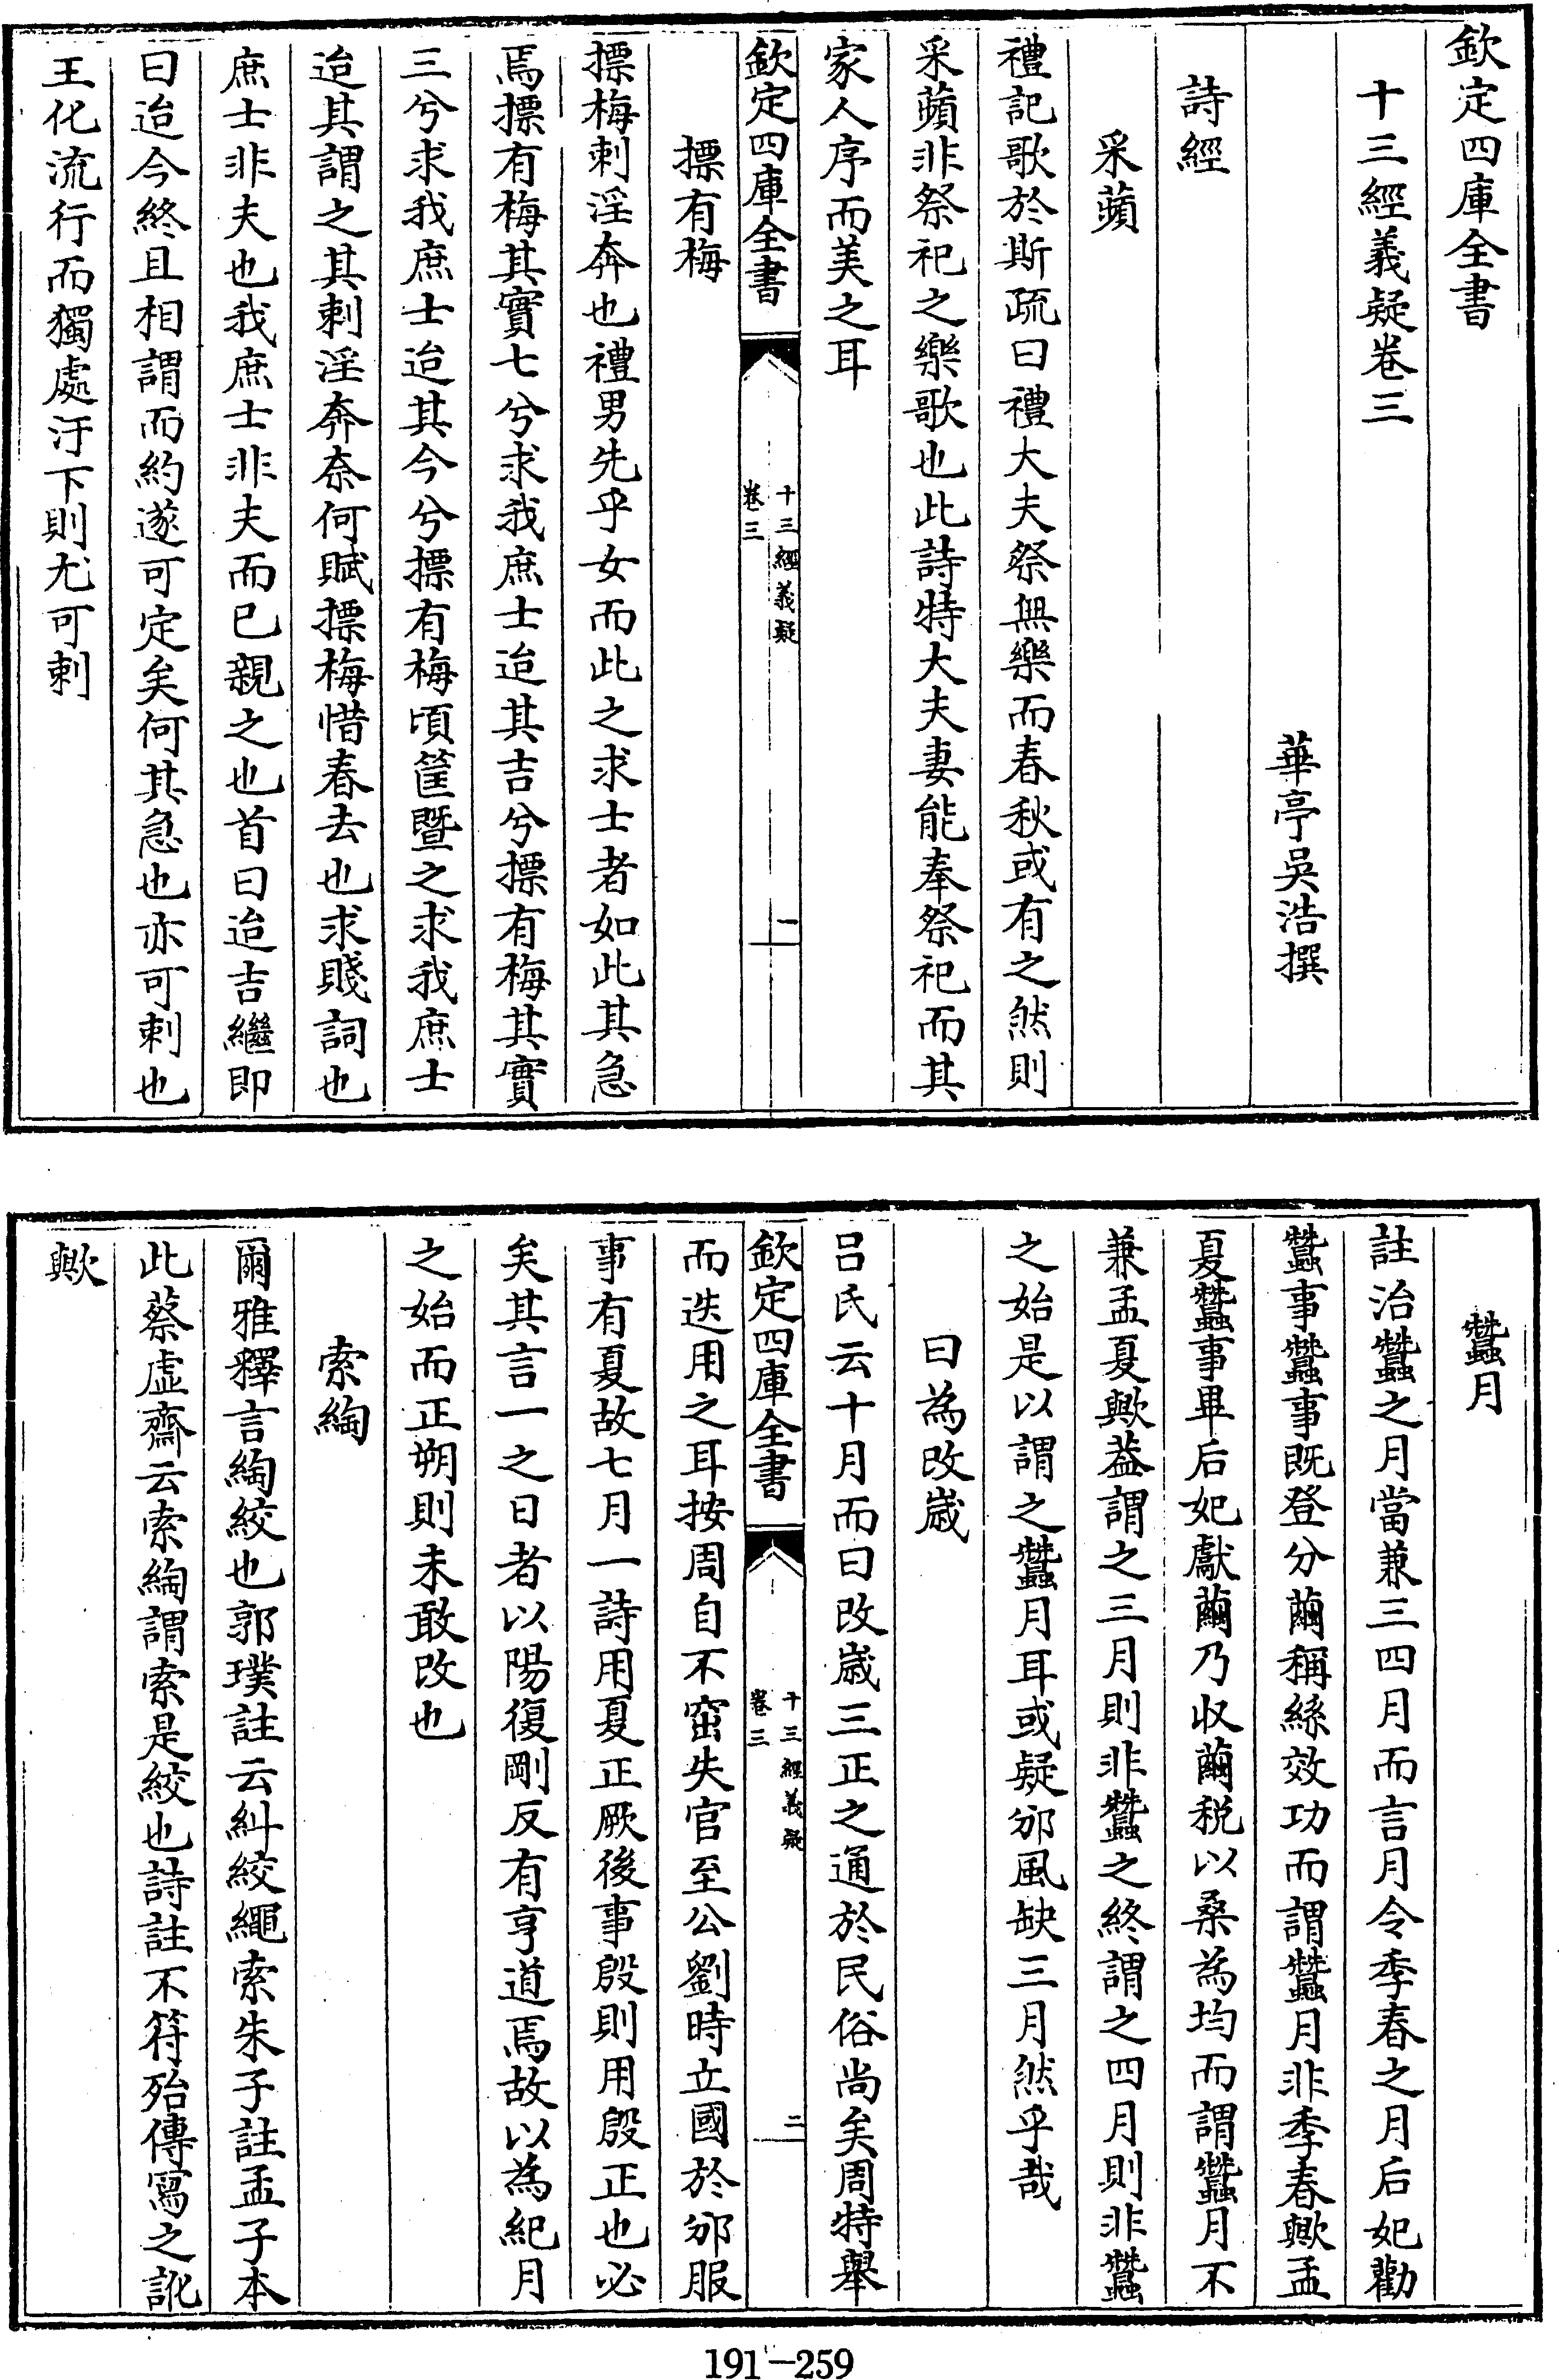 欽定四庫全書
十三經義疑卷三
華亭吳浩撰
詩經
采蘋
禮記歌於斯疏曰禮大夫祭無樂而春秋或有之然則
采蘋非祭祀之樂歌也此詩特大夫妻能奉祭祀而其
家人序而美之耳
欽定四庫全書
十三經義疑
卷三
一
摽有梅
摽梅刺淫奔也禮男先乎女而此之求士者如此其急
焉摽有梅其實七兮求我庶士迨其吉兮摽有梅其實
三兮求我庶士迨其今兮摽有梅頃筐暨之求我庶士
迨其謂之其刺淫奔奈何賦摽梅惜春去也求賤詞也
庶士非夫也我庶士非夫而已親之也首曰迨吉繼即
曰迨今終且相謂而約遂可定矣何其急也亦可刺也
王化流行而獨處汙下則尤可刺
蠶月
註治蠶之月當兼三四月而言月令季春之月后妃勸
蠶事蠶事既登分繭稱絲效功而謂蠶月非季春歟孟
夏蠶事畢后妃獻繭乃收繭稅以桑為均而謂蠶月不
兼孟夏歟蓋謂之三月則非蠶之終謂之四月則非蠶
之始是以謂之蠶月耳或疑邠風缺三月然乎哉
曰為改歲
呂氏云十月而曰改歲三正之通於民俗尚矣周特舉
欽定四庫全書
十三經義疑
卷三
二
而迭用之耳按周自不窋失官至公劉時立國於邠服
事有夏故七月一詩用夏正厥後事殷則用殷正也必
矣其言一之日者以陽復剛反有亨道焉故以為紀月
之始而正朔則未敢改也
索綯
爾雅釋言綯絞也郭璞註云糾絞繩索朱子註孟子本
此蔡虛齋云索綯謂索是絞也詩註不符殆傳寫之訛
歟
191-259